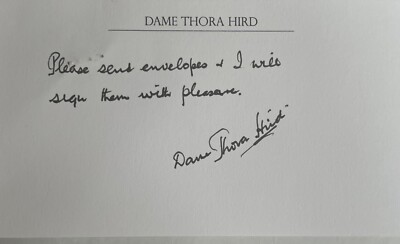 DAME THORA HIRD
Please send envelopes & I will
sign them with pleasure.
Dame Thora Hird